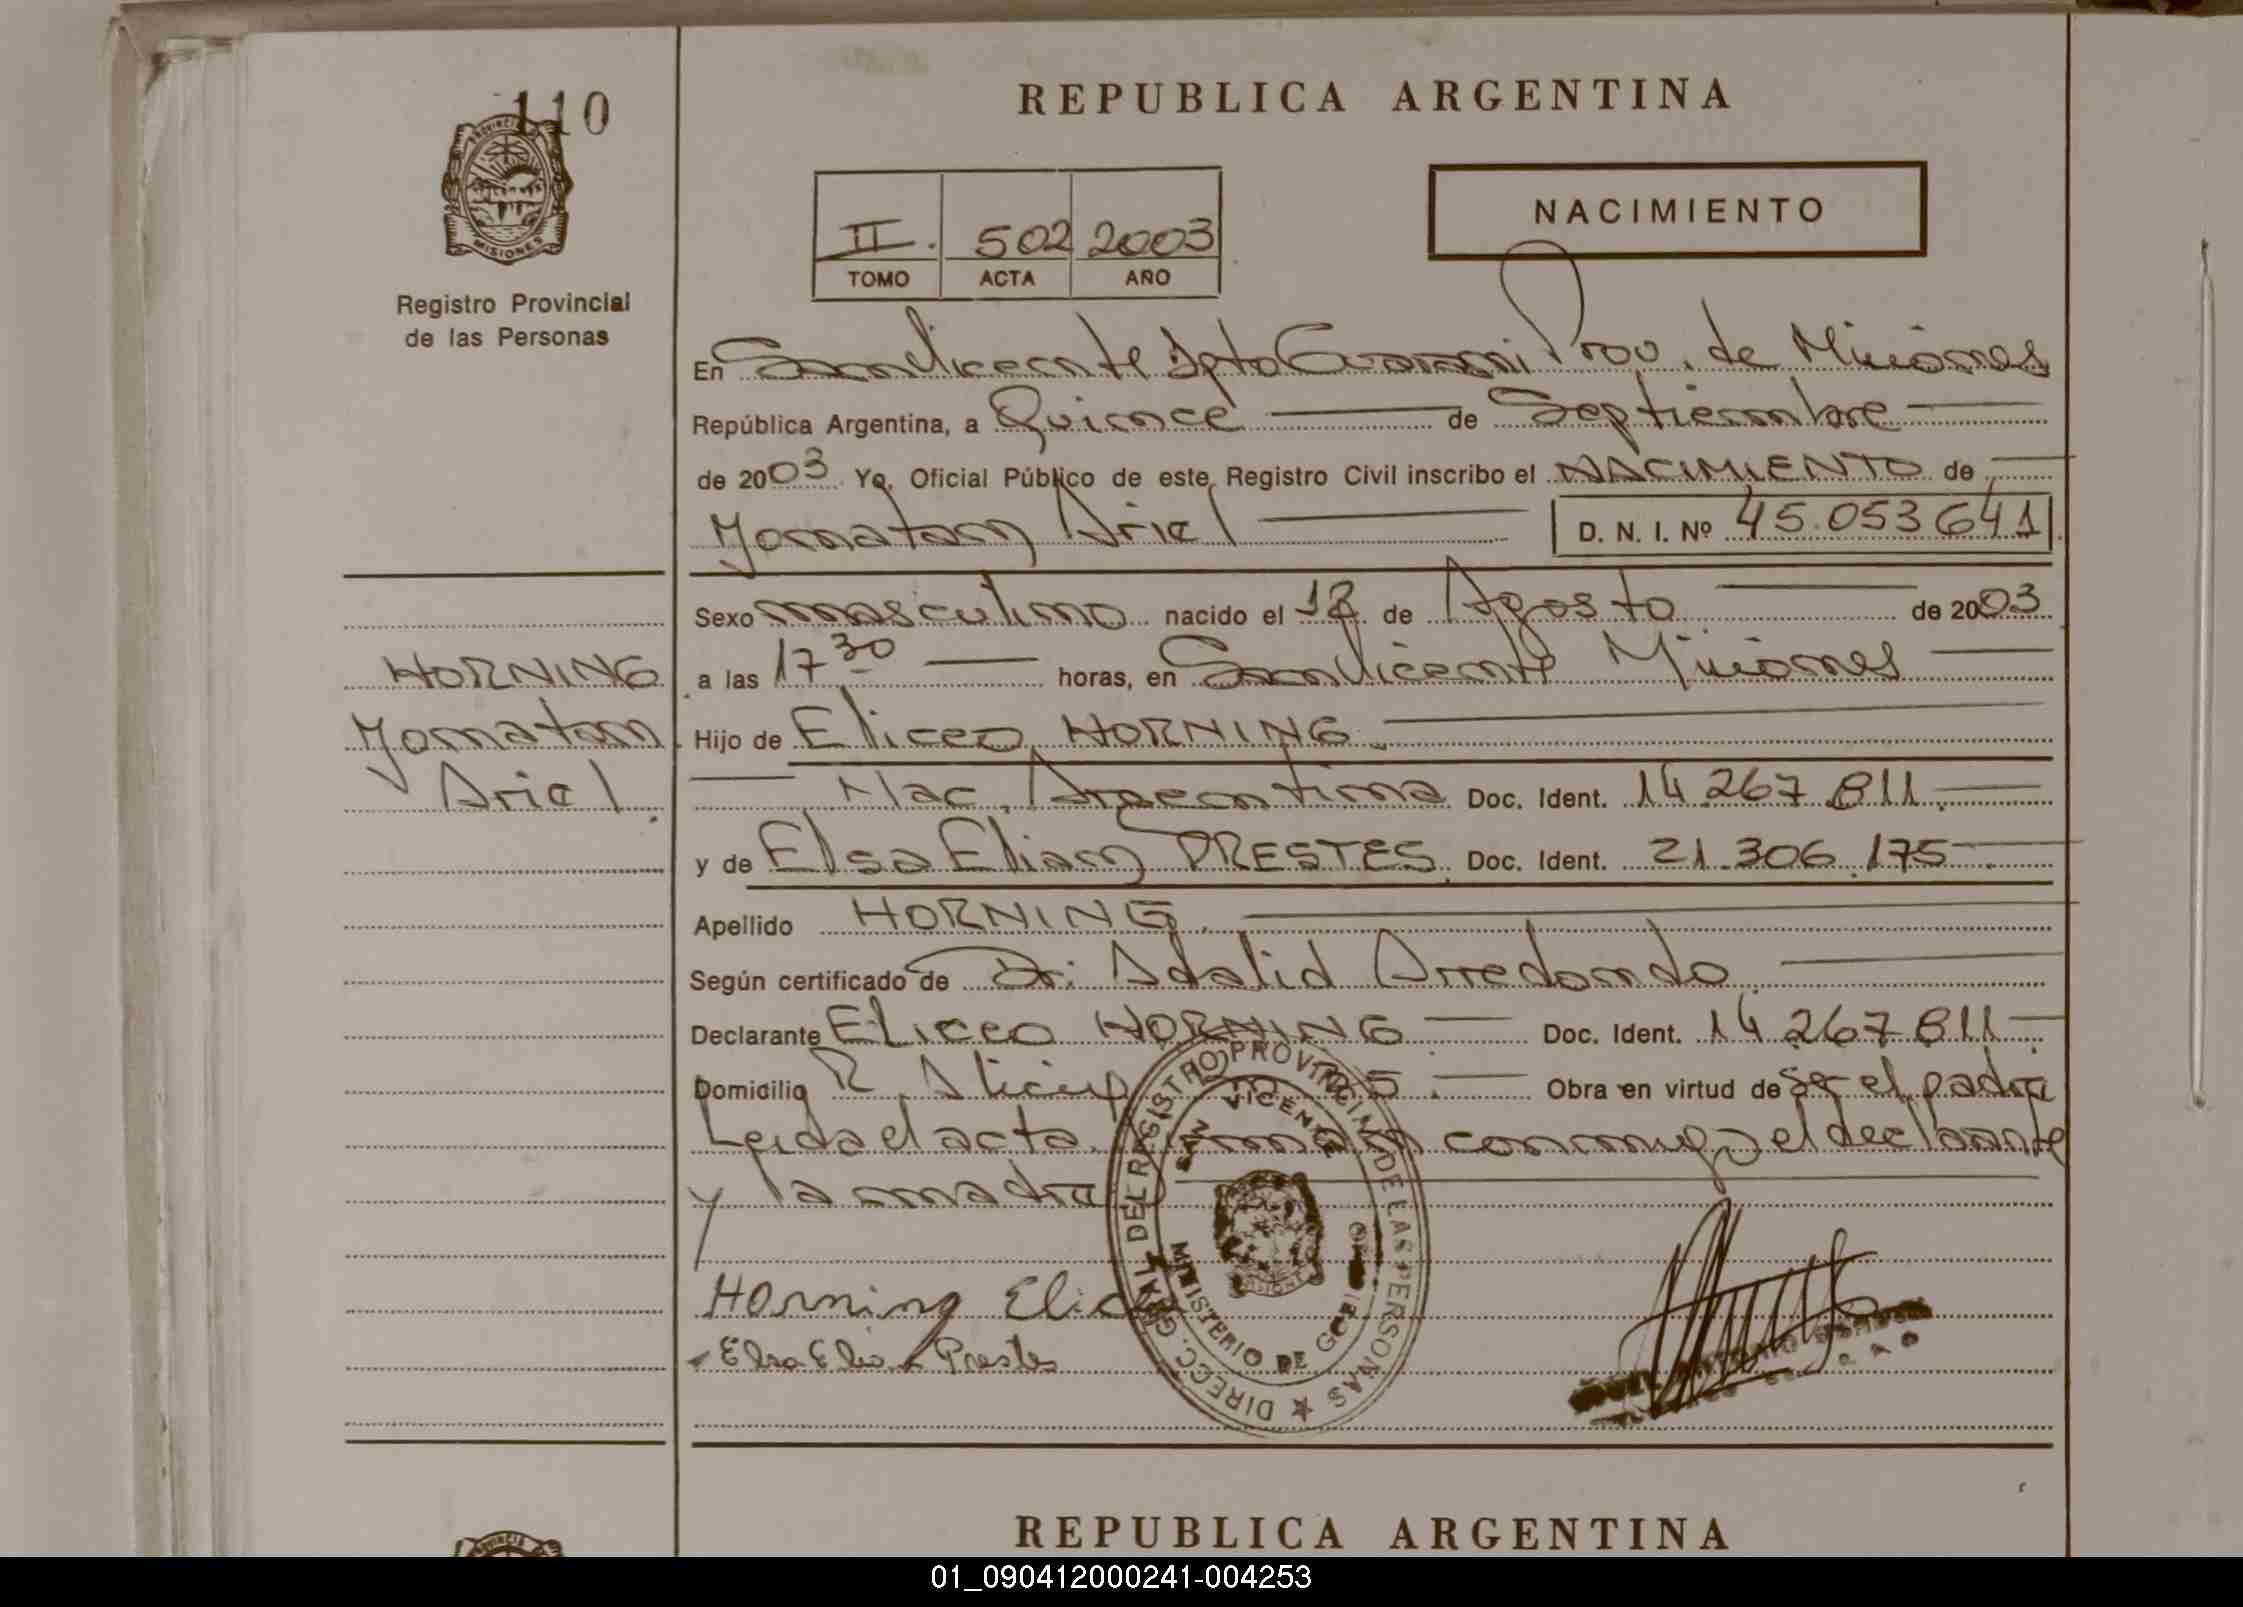 110
PROVINCIA
MISIONES
Registro Provincial
de las Personas
REPUBLICA ARGENTINA
NACIMIENTO
II. 502 2003
TOMO ACTA AÑO
En San Vicente Dpto Guarani Prov. de Misiones
República Argentina, a Quince de Septiembre
de 2003 Yo, Oficial Público de este Registro Civil inscribo el NACIMIENTO de
Yonatan Ariel D. N. I. Nº 45.053.641
Sexo masculino nacido el de Agosto de 2003
HORNING
a las 17 30 horas, en San Vicente Misiones
Yonatan
Hijo de Eliceo HORNING
Ariel
Nac. Argentina Doc. Ident. 14.267.811
y de Elsa Elian PRESTES Doc. Ident. 21.306.175
Apellido HORNING
Según certificado de Dr. Adalid Arredondo
Declarante Eliceo HORNING Doc. Ident. 14.267.811
Domicilio Obra en virtud de Ser el padre
Leida el acta, firman conmigo el declarante
y la madre
Horning
Elsa Prestes
DIRECC. GRAL DEL REGISTRO PROVINCIAL DE LAS PERSONAS
SAN VICENTE
MINISTERIO DE GOBIERNO
REPUBLICA ARGENTINA
01_090412000241-004253